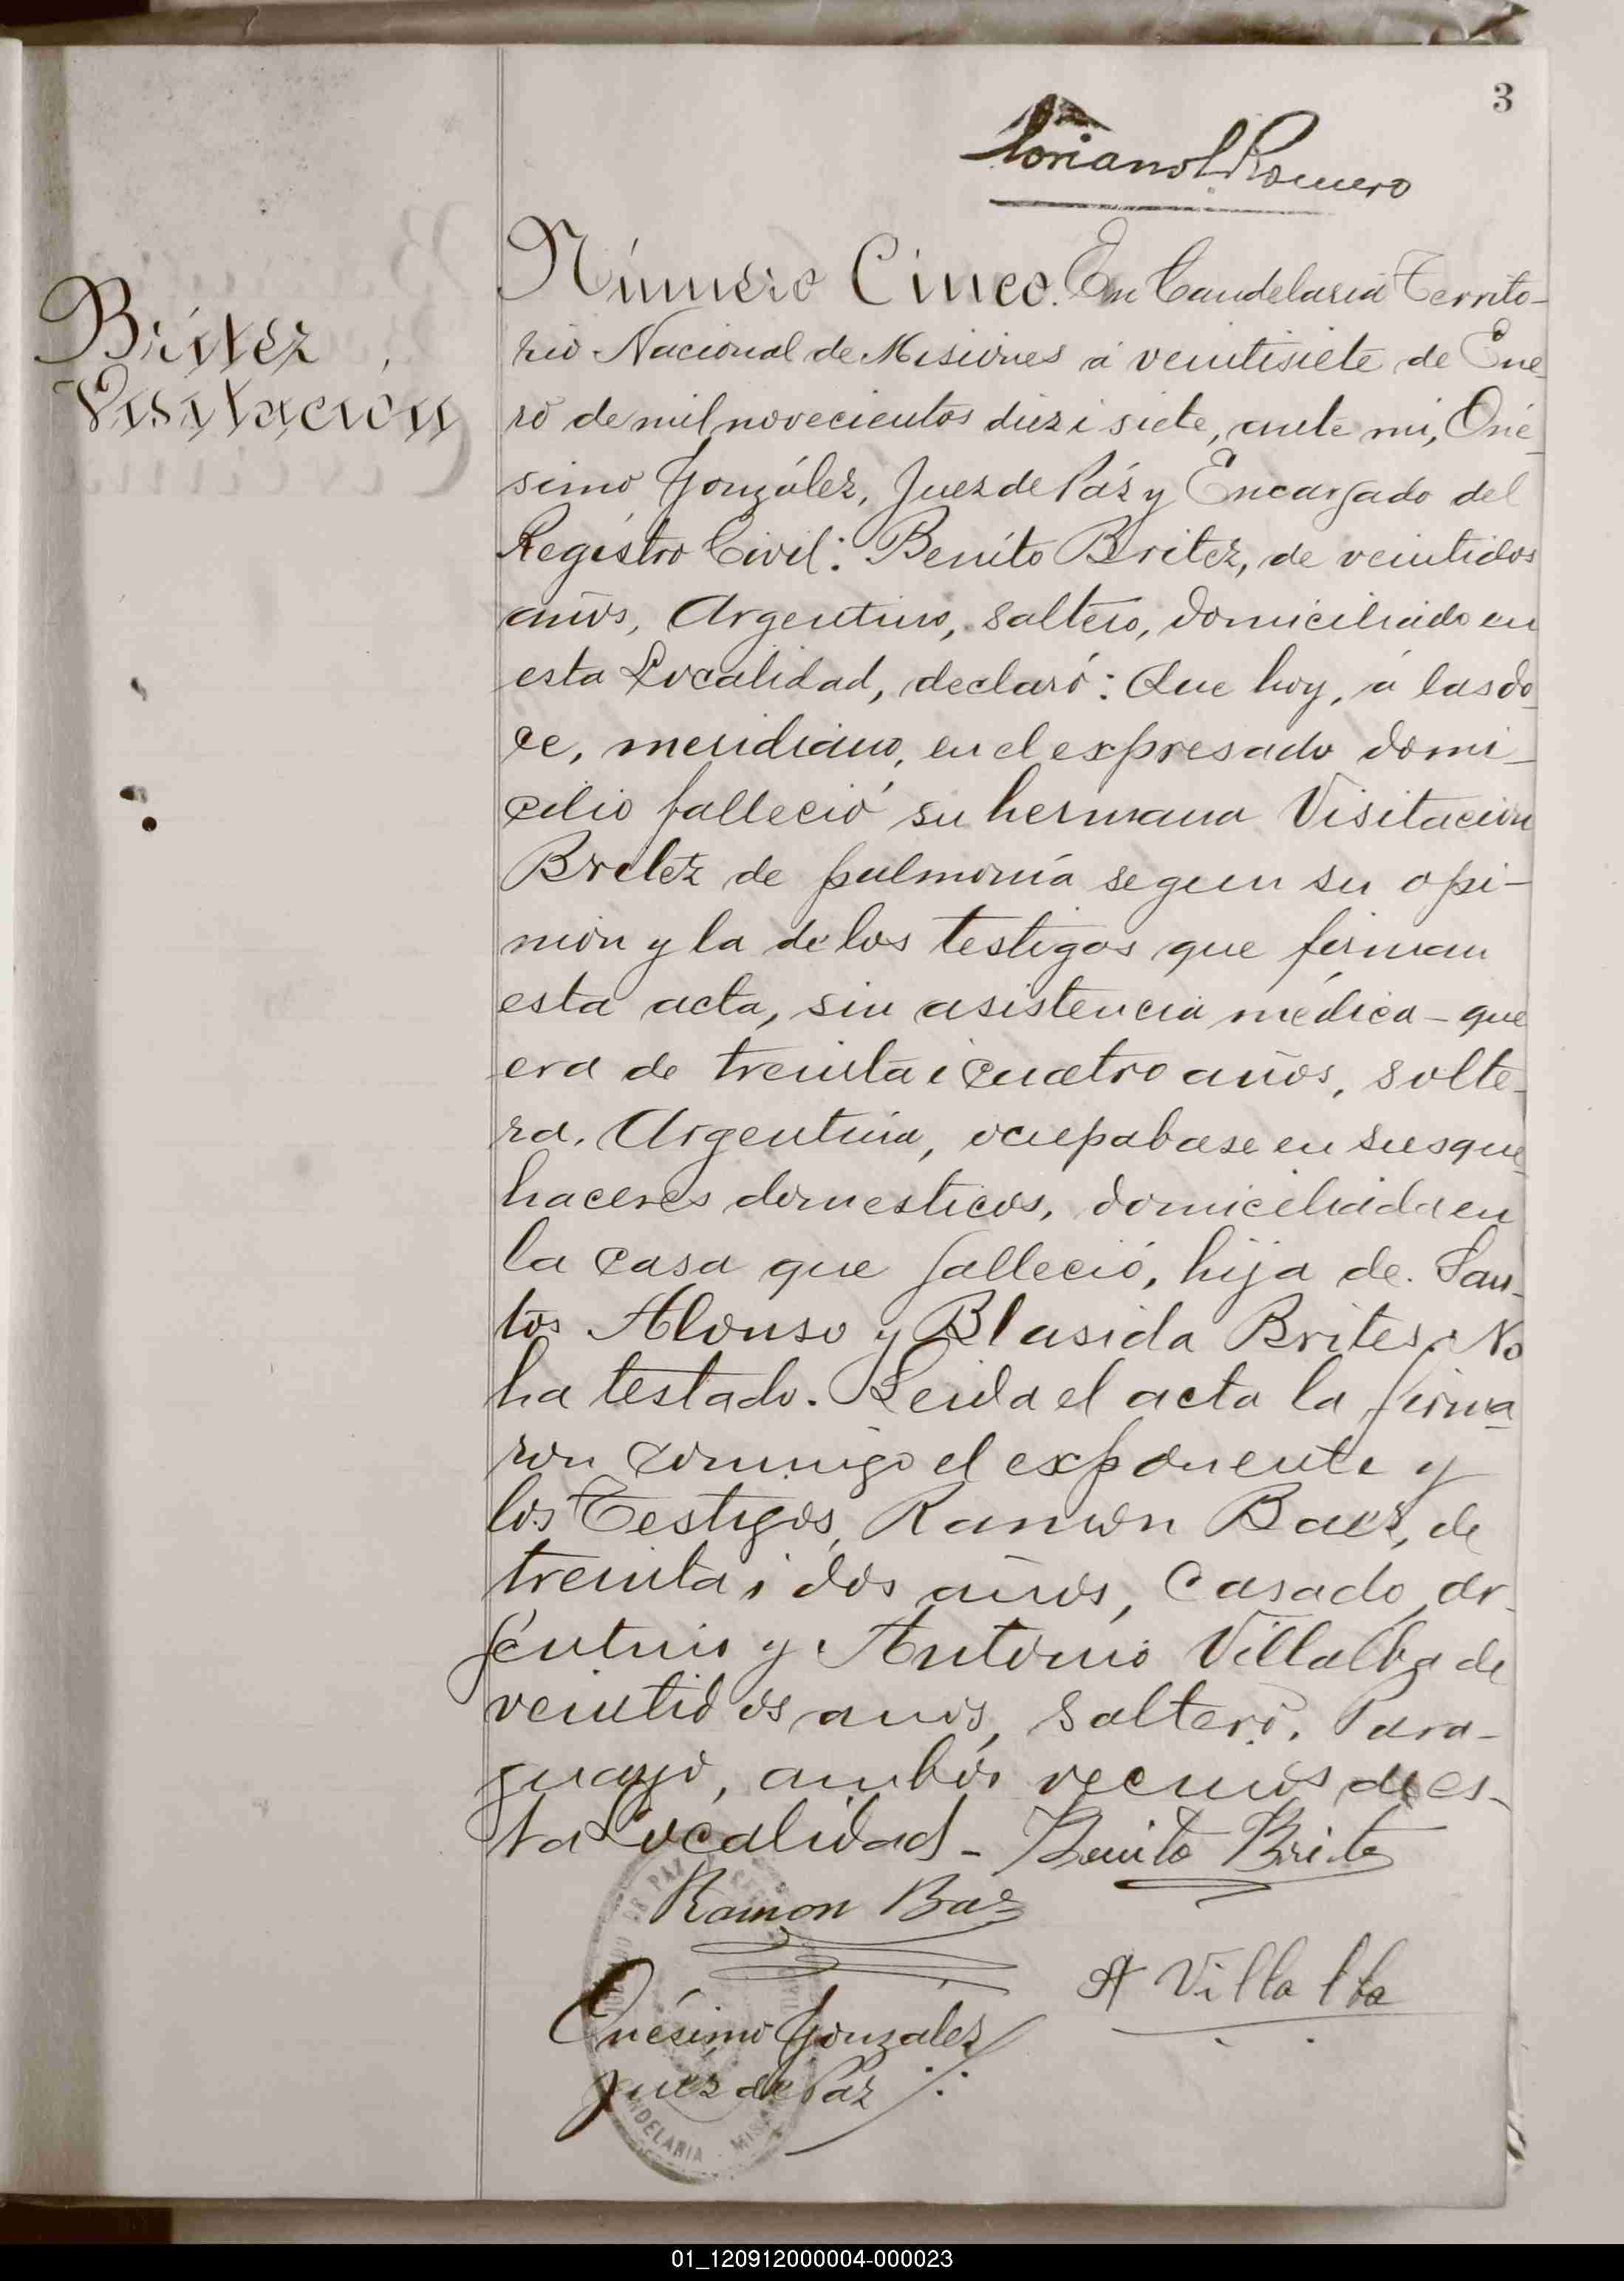 3
Romero
Número Cinco. En Candelaria Territo-
rio Nacional de Misiones á veintisiete de Ene-
Britez
Visitación
ro de mil novecientos diez i siete, ante mi, Oné-
simo González, Juez de Páz y Encargado del
Registro Civil: Benito Britez, de veintidos
años, Argentino, soltero, domiciliado en
esta Localidad, declaró: Que hoy, á las do-
ce, meridiano, en el expresado domi-
cilio falleció su hermana Visitación
Britez de pulmonía segun su opi-
nión y la de los testigos que firman
esta acta, sin asistencia médica - que
era de treinta i cuatro años, solte-
ra, Argentina, ocupabase en sus que-
haceres domesticos, domiciliada en
la casa que falleció, hija de San-
tos Alonso y Blasida Brites. No
ha testado. Leida el acta la firma-
ron conmigo el exponente y
los Testigos, Ramón Baez, de
treinta i dos años, casado, ar-
jentino y Antonio Villalba de
veintidos anos, soltero, Para-
guayo, ambos vecinos de es-
ta Localidad - Benito Brite
Ramon Baz
A Villalba
Onésimo Gonzalez
Juez de Paz
CANDELARIA - MISIONES
01_120912000004-000023